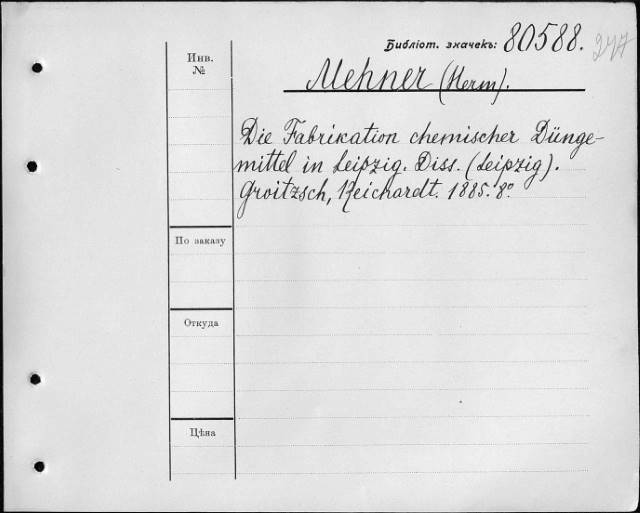 Библіот. значекъ: 80588. 277
Инв.
№
Mehner (Herm).
Die Fabrikation chemischer Dünge-
mittel in Leipzig. Diss. (Leipzig).
Groitzsch, Reichardt. 1885. 8º.
По заказу
Откуда
Цѣна